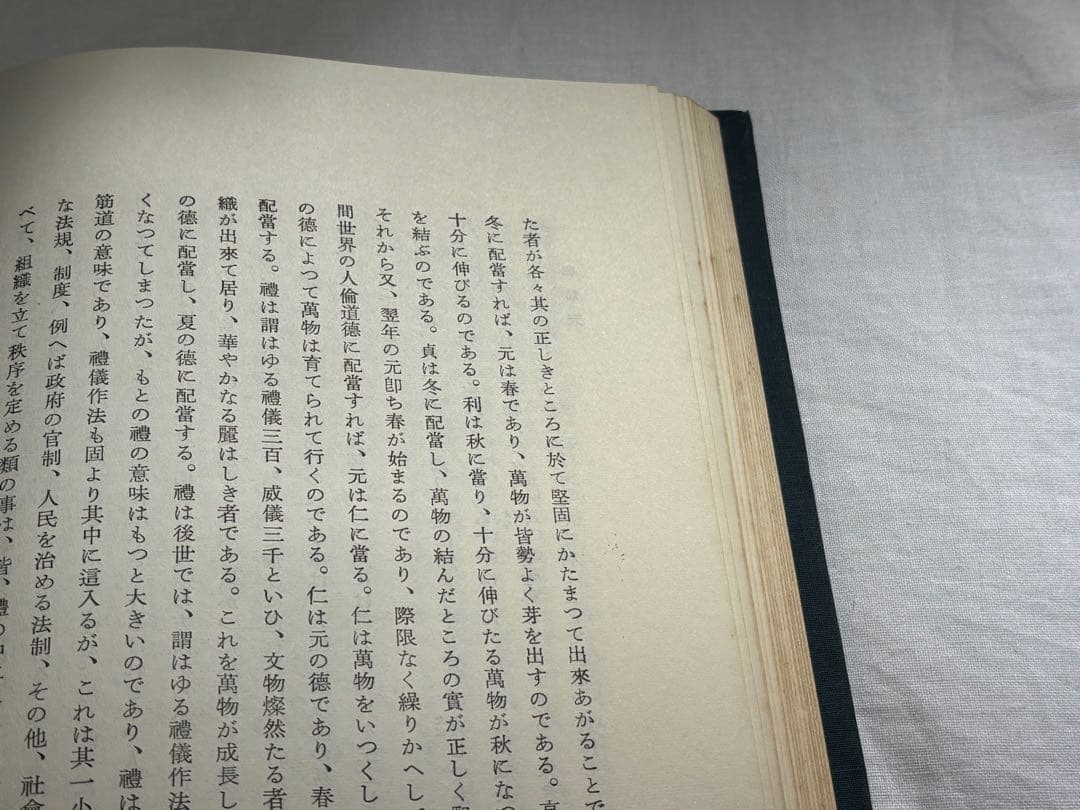 た者が各々其の正しきところに於て堅固にかたまつて出來あがることで
冬に配當すれば、元は春であり、萬物が皆勢よく芽を出すのである。
十分に伸びるのである。利は秋に當り、十分に伸びたる萬物が秋になつ
を結ぶのである。貞は冬に配當し、萬物の結んだところの實が正しく
それから又、翌年の元卽ち春が始まるのであり、際限なく繰りかへし
間世界の人倫道德に配當すれば、元は仁に當る。仁は萬物をいつくし
の德によつて萬物は育てられて行くのである。仁は元の德であり、春
配當する。禮は謂はゆる禮儀三百、威儀三千といひ、文物燦然たる者
織が出來て居り、華やかなる麗はしき者である。これを萬物が成長し
の德に配當し、夏の德に配當する。禮は後世では、謂はゆる禮儀作法
くなつてしまつたが、もとの禮の意味はもつと大きいのであり、禮は
筋道の意味であり、禮儀作法も固より其中に這入るが、これは其一小
な法規、制度、例へば政府の官制、人民を治める法制、その他、社會
べて、組織を立て秩序を定める類の事は、皆、禮の中